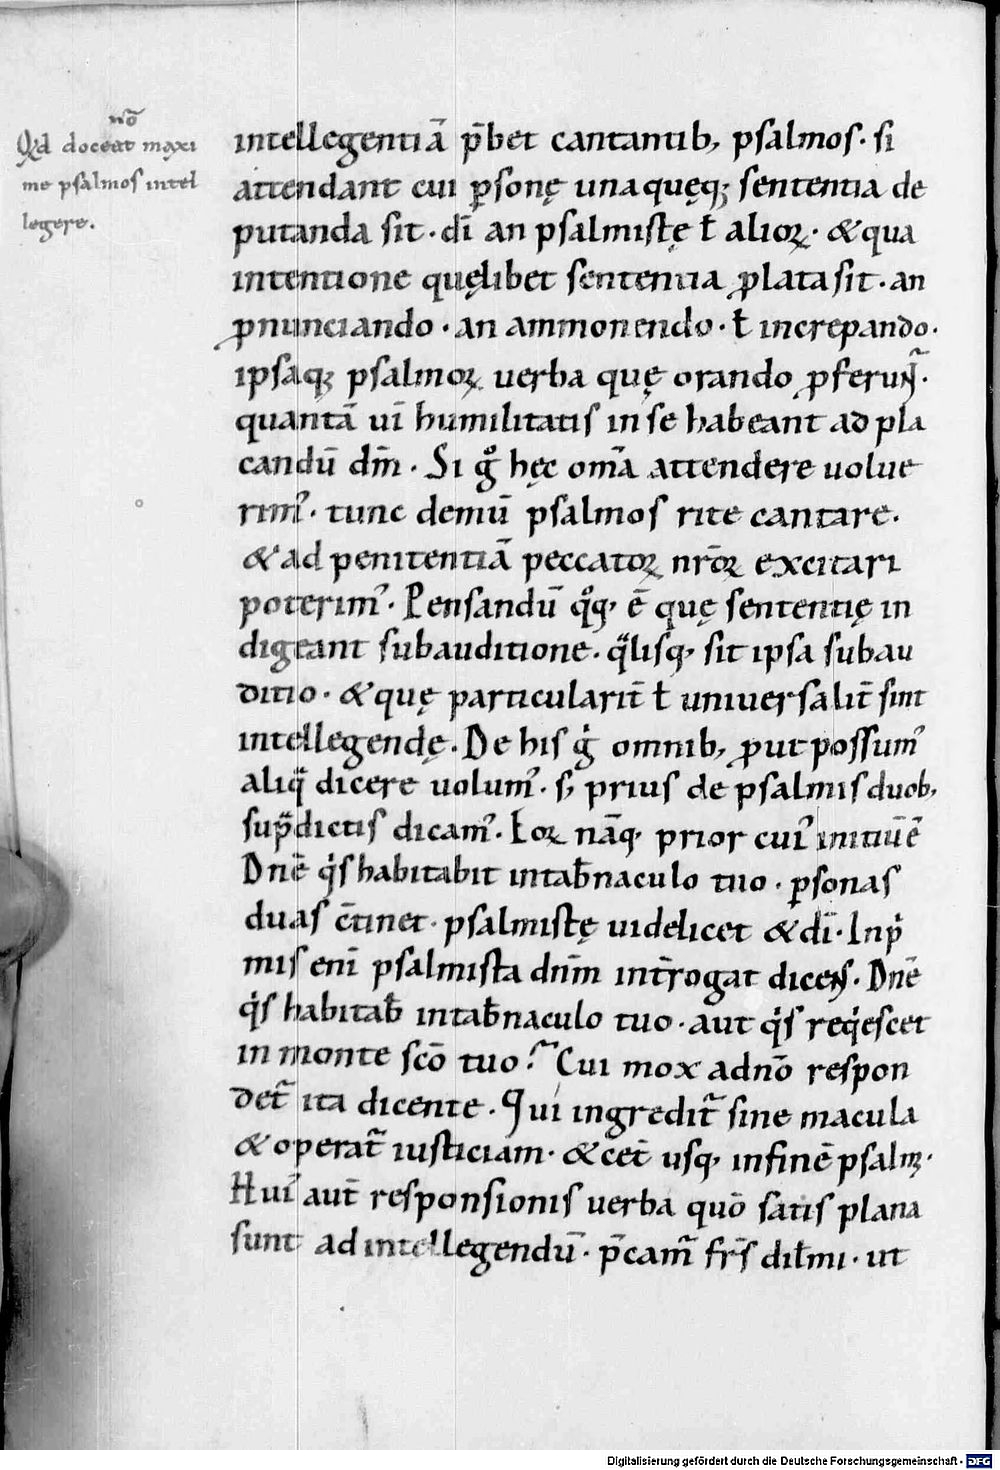 nō
Qd doceat maxi
me psalmos intel
legere.
intellegentiā p̄bet cantantib; psalmos. si
attendant cui ꝑsonę unaquęq; sententia de
putanda sit. dī an psalmistę ł alioꝝ. & qua
intentione quęlibet sententia ꝓlata sit. an
ꝓnunciando. an ammonendo. ł increpando.
ipsaq; psalmoꝝ uerba quę orando ꝓferunt̃.
quantā uī humilitatis in se habeant ad pla
candū dm̄. Si gͦ hęc om̄a attendere uolue
rim᾽. tunc demū psalmos rite cantare.
& ad penitentiā peccatoꝝ nr̄oꝝ excitari
poterim᾽. Pensandū qͦq; ē quę sententię in
digeant subauditione. qᵃlisq; sit ipsa subau
ditio. & quę particularit̄ ł uniuersalit̄ sint
intellegendę. De his gͥ omnib; ꝓut possum᾽
aliqᵃ dicere uolum᾽. s; prius de psalmis duob;
supᵃdictis dicam᾽. Eoꝝ nāq; prior cui᾽ initiū ē
Dnē qͥs habitabit in tab̄naculo tuo. ꝑsonas
duas c̄tinet. psalmistę uidelicet & dī. Inpͥ
mis enī psalmista dnm̄ int̄rogat dicens. Dnē
qͥs habitab̄ in tab̄naculo tuo. aut qͥs reqͥescet
in monte scō tuo? Cui mox a dnō respon
det̃ ita dicente. Qui ingredit̃ sine macula
& operat̃ iusticiam. & cet̄ usq; in finē psalmꝫ.
Hui᾽ aut̄ responsionis uerba quō satis plana
sunt ad intellegendū. p̄cam̃ fr̄s dił̄mi. ut
Digitalisierung gefördert durch die Deutsche Forschungsgemeinschaft - DFG